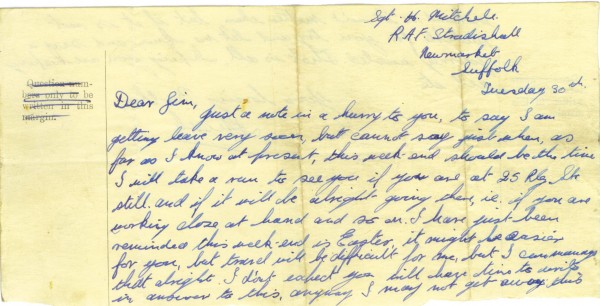 Sgt. H. Mitchell.
R.A.F. Stradishall
Newmarket
Suffolk
Tuesday 30th.
Question num-
bers only to be
written in this
margin.
Dear Jim,
Just a note in a hurry to you, to say I am
getting leave very soon, but cannot say just when, as
far as I know at present, this week-end should be the time
I will take a run to see you if you are at 25 Rly. Ste
still. and if it will be alright going there, i.e. if you are
working close at hand and so on. I have just been
reminded this week-end is Easter, it might be easier
for you, but travel will be difficult for me, but I can manage
that alright. I don't expect you will have time to write
in answer to this, anyway I may not get away this